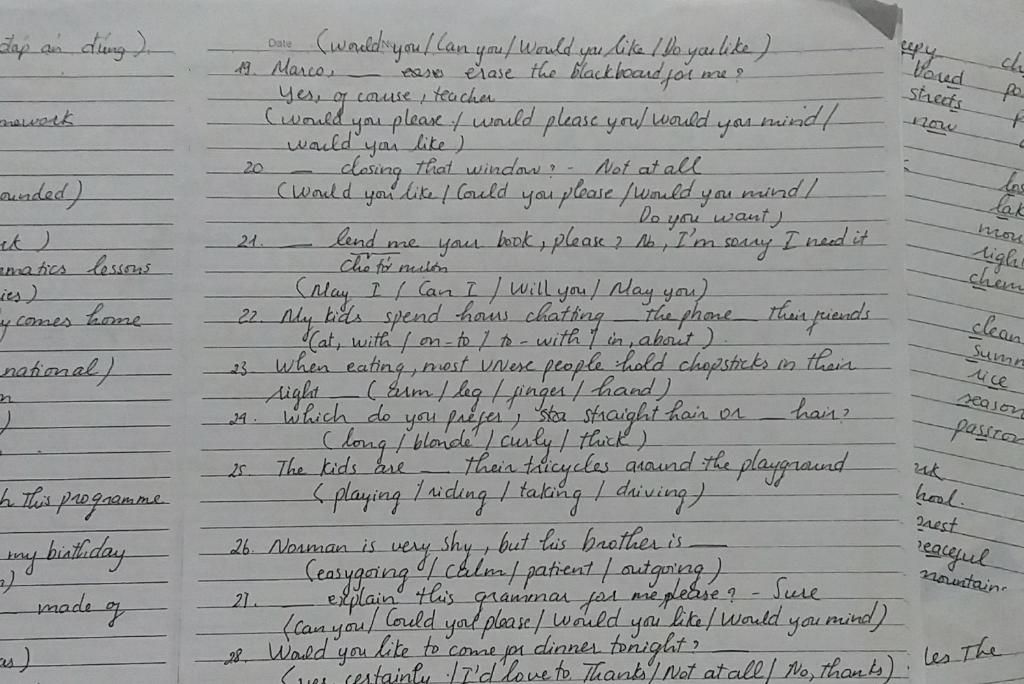 đáp án đúng)
mework
ounded)
rk)
ematics lessons
ies)
y comes home
national)
n
)
h this programme
my birthday
)
made of
as)
Date
(Would you / Can you / Would you like / Do you like)
19. Marco, __ erase the blackboard for me?
Yes, of course, teacher
(would you please / would please you / would you mind /
would you like)
20 __ closing that window? - Not at all
(Would you like / Could you please / Would you mind /
Do you want)
21. __ lend me your book, please? No, I'm sorry I need it
cho từ mượn
(May I / Can I / Will you / May you)
22. My kids spend hours chatting __ the phone __ their friends
(at, with / on - to / to - with / in, about)
23. When eating, most Vnese people hold chopsticks in their
right __ (arm / leg / finger / hand)
24. Which do you prefer, straight hair or __ hair?
(long / blonde / curly / thick)
25. The kids are __ their tricycles around the playground
(playing / riding / taking / driving)
26. Norman is very shy, but his brother is __
(easygoing / calm / patient / outgoing)
27. __ explain this grammar for me please? - Sure
(Can you / Could you please / Would you like / Would you mind)
28. Would you like to come for dinner tonight? __
(yes, certainly / I'd love to Thanks / Not at all / No, thanks)
eepy ch
bored pa
streets
now
los
lak
mou
right
chem
clean
summ
rice
season
passion
hool.
orest
eaceful
mountain
les The